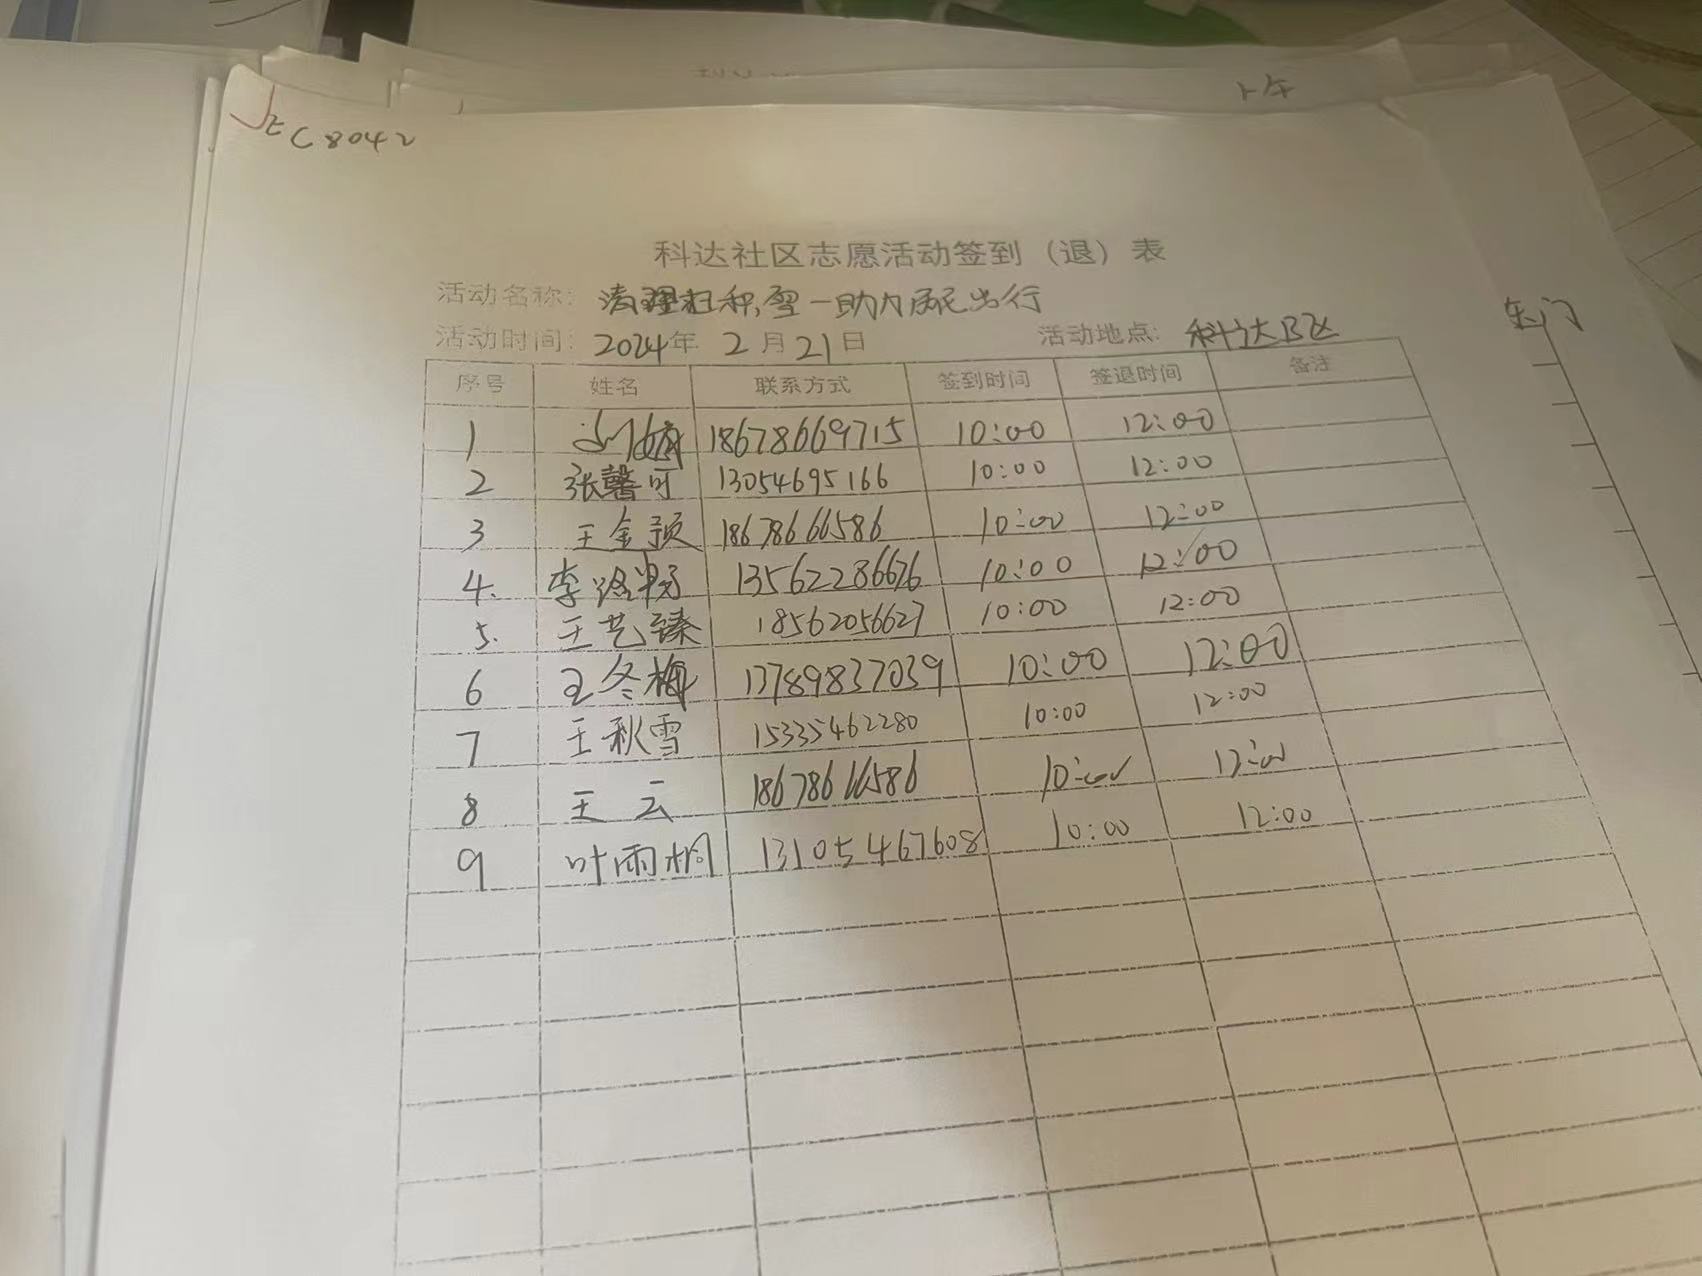 C8042
上午
科达社区志愿活动签到（退）表
活动名称：清理积雪一助力居民出行
东门
活动时间：2024年 2月21日 活动地点：科达B区
序号 姓名 联系方式 签到时间 签退时间 备注
1 18678669715 10:00 12:00
2 张馨可 13054695166 10:00 12:00
3 王金颖 18678666586 10:00 12:00
4. 李 13562286626 10:00 12:00
5. 王艺臻 18562056627 10:00 12:00
6 王冬梅 13789837039 10:00 12:00
7 王秋雪 15335462280 10:00 12:00
8 王云 18678666586 10:00 12:00
9 叶雨桐 13105467608 10:00 12:00